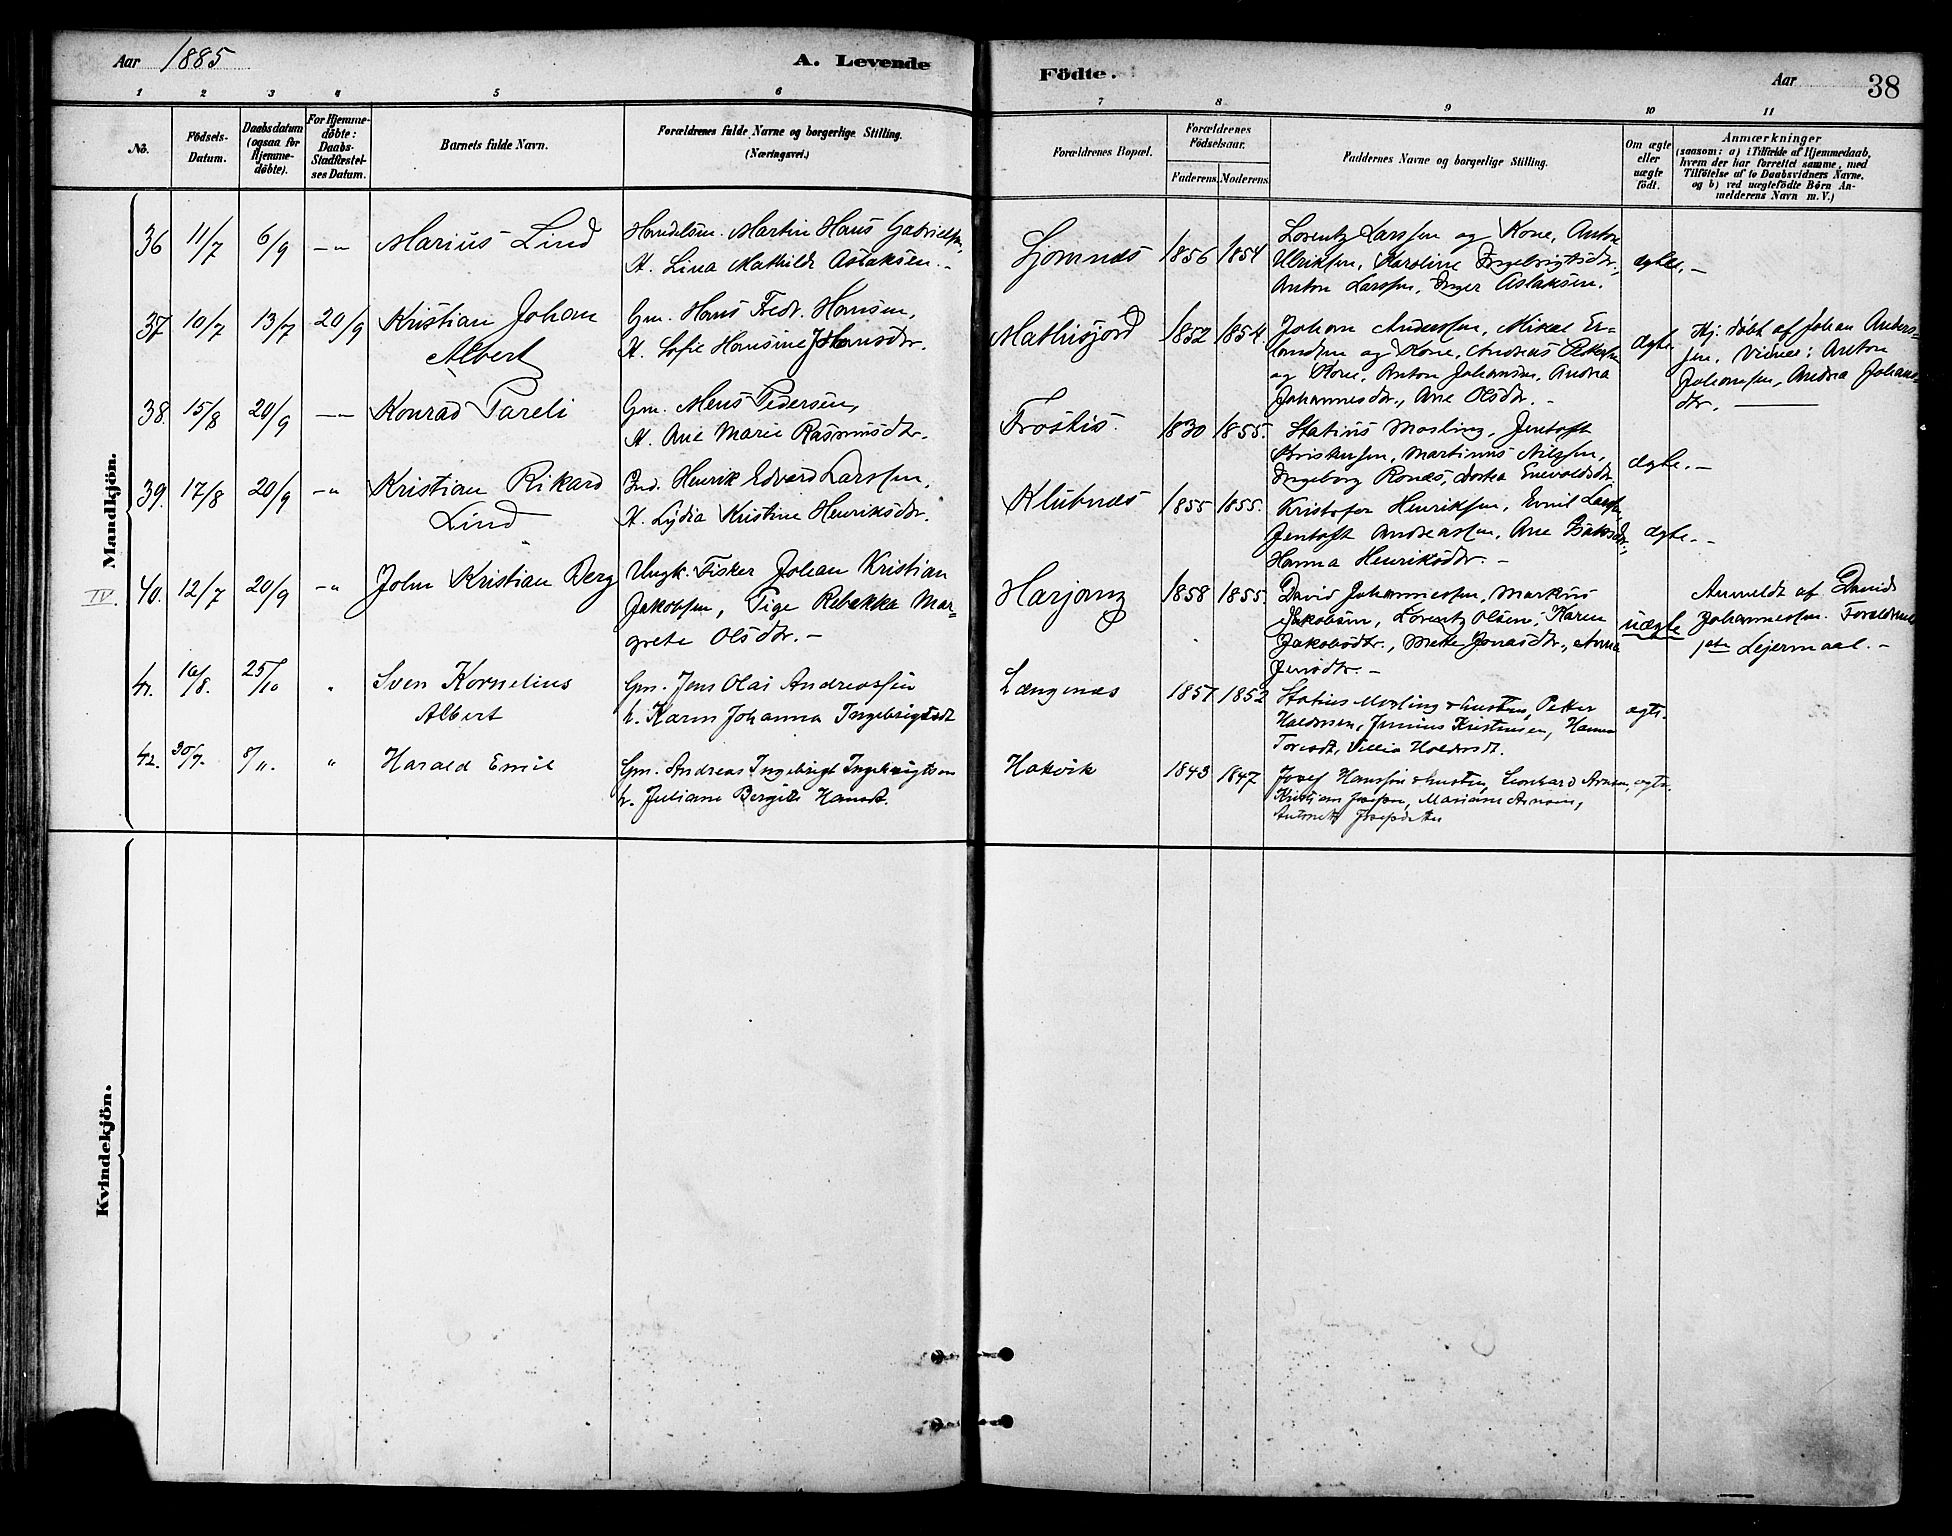 Aar 1885
A. Levende
Födte.
Aar
38
1 2 3 4 5 6 7 8 9 10 11
No.
Födsels-
Datum.
Daabsdatum
(ogsaa for
Hjemme-
döbte).
For Hjemme-
döbte:
Daabs-
Stadfæstel-
ses Datum.
Barnets fulde Navn.
Forældrenes fulde Navne og borgerlige Stilling.
(Næringsvei.)
Forældrenes Bopæl.
Forældrenes
Födselsaar.
Faderens. Moderens.
Faddernes Navne og borgerlige Stilling.
Om ægte
eller
uægte
födt.
Anmærkninger
(saasom: a) i Tilfælde af Hjemmedaab,
hvem der har forrettet samme, med
Tilföielse af to Daabsvidners Navne,
og b) ved uægtefödte Börn An-
melderens Navn m.V.)
Mandkjön.
36 11/7 6/9 -"-
Marius Lind
Martin Hans Gabrielsen,
H. Lina Mathilde Aslaksen.-
1856 1854
Lorentz Larssen og Kone, Anton
Ulriksen, Karoline Ingebrigtsdtr.,
Anton Larssen, Inger Aslaksen.
ægte.-
37 10/7 13/7 20/9
Kristian Johan
Albert
Gm. Hans Fredr. Hansen,
H. Sofie Hansine Hansdtr.
Mathisjord
1852 1854.
Johan Anderssen, Mikal Er-
landsen og Kone, Andreas Pettersen
og Kone, Anton Johansen, Andrea
Johannesdtr., Ane Olsdtr. -
ægte.
Hj. döbt af Johan Anders-
sen, Vidner: Anton
Johansen, Andrea Johans-
dtr.
38. 15/8 20/9 -"-
Konrad Pareli
Gm. Mens Pedersen,
H. Ane Marie Rasmusdtr.
1830 1855.
Statius Mosling, Jentoft
Kristensen, Martinus Nilssen,
Ingeborg Ronæs,
ægte.-
39. 17/8 20/9 -"
Kristian Rikard
Lind
Ind. Henrik Edvard Larssen,
H. Lydia Kristine Henriksdtr.
Klubnæs
1855 1855.
Kristofer Henriksen, Emil Larssen,
Jentoft Andreassen, Ane Isaksdtr.,
Hanna Henriksdtr. -
ægte.-
IV. 40. 12/7 20/9 -"
John Kristian Berg
Ungk. Fisker Johan Kristian
Jakobsen, Pige Rebekka Mar-
grete Olsdtr. -
Harjang
1858 1855.
David Johannessen, Markus
Jakobsen, Lorentz Olsen, Karen
Jakobsdtr., Mette Jonasdtr., Anna
Jensdtr. -
uægte
Anmeldt af David
Johannessen. Forældrenes
1ste Leiermaal. -
41. 16/8. 25/10 "
Sven Kornelius
Albert
Gm. Jens Olai Andreassen
h. Karen Johanna Ingebrigtsdt
Længenæs
1857 1852
Statius Mosling & hustru, Petter
Haldorsen, Jenius Kristensen, Hanna
ægte.
42. 30/7. 8/11. "
Harald Emil
Gm. Andreas Ingebrigt Ingebrigtsen
h. Juliane Bergite Hansdt.
Hakvik
1843 1847
Josef Hanssen & hustru, Leonhard Arnsen,
Kristian Josefsen, Mariane Arnsen,
ægte.
Kvindekjön.